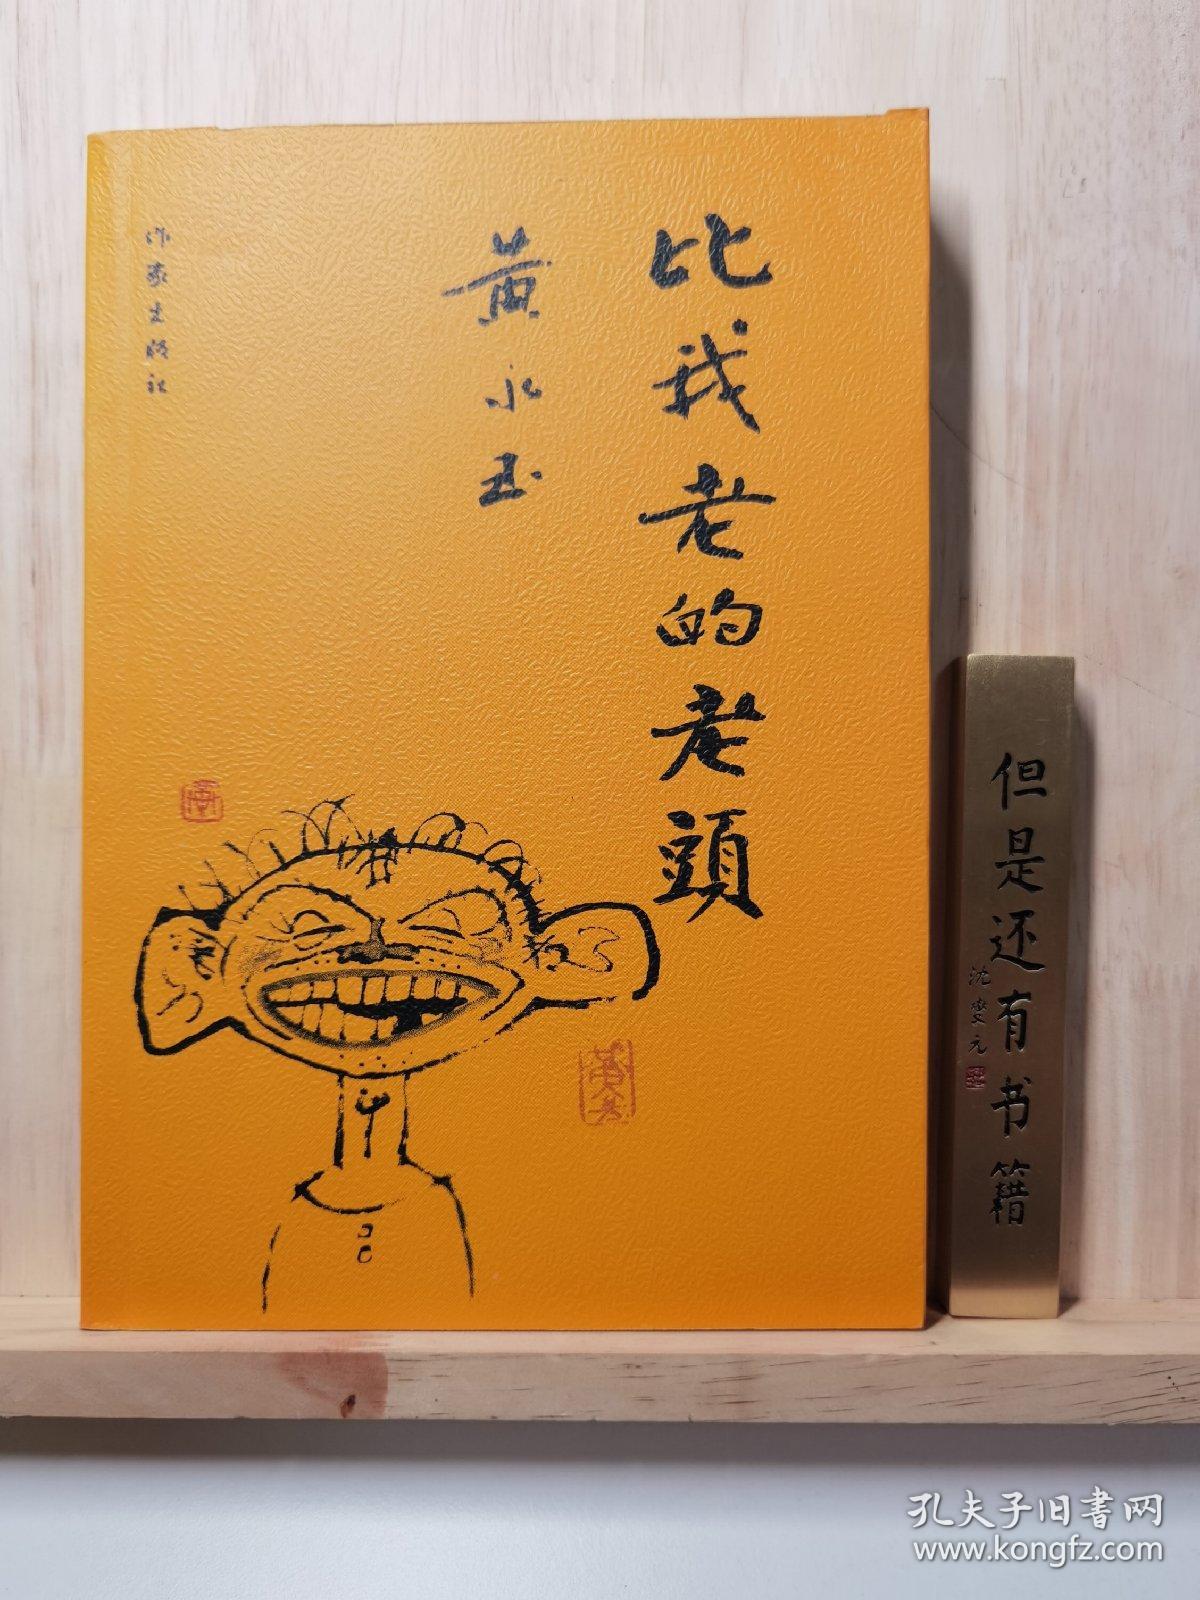 比我老的老頭
黄永玉
作家出版社
但是还有书籍
沈燮元
孔夫子旧書网
www.kongfz.com